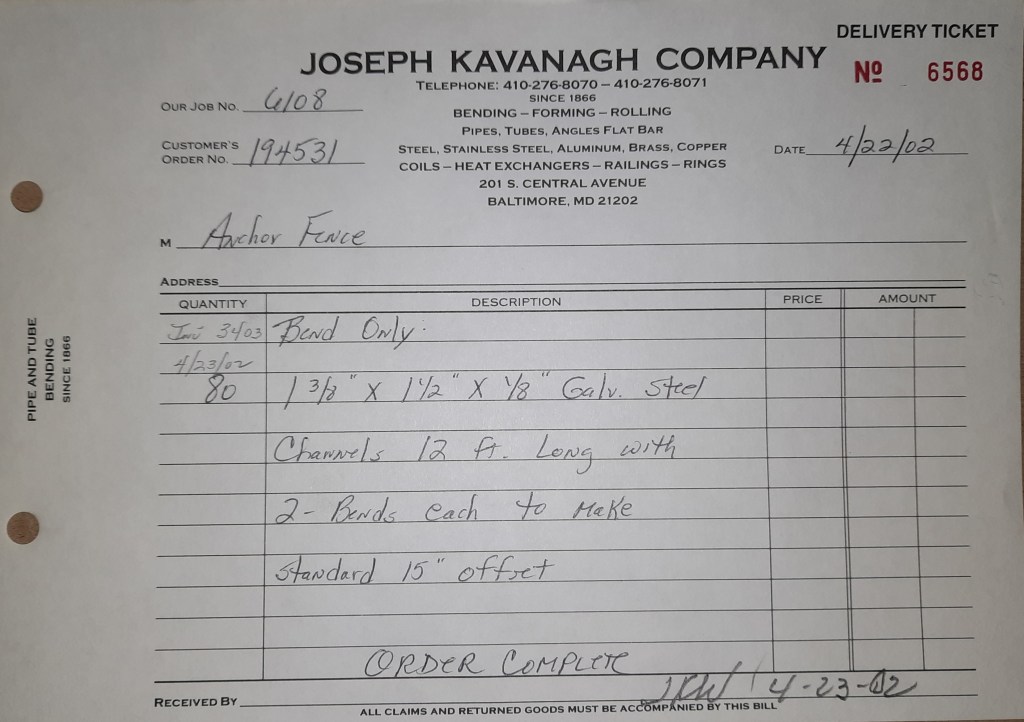 DELIVERY TICKET
JOSEPH KAVANAGH COMPANY
Nº 6568
TELEPHONE: 410-276-8070 – 410-276-8071
SINCE 1866
OUR JOB NO. 6108
BENDING – FORMING – ROLLING
PIPES, TUBES, ANGLES FLAT BAR
CUSTOMER'S
ORDER NO. 194531
STEEL, STAINLESS STEEL, ALUMINUM, BRASS, COPPER
DATE 4/22/02
COILS – HEAT EXCHANGERS – RAILINGS – RINGS
201 S. CENTRAL AVENUE
BALTIMORE, MD 21202
M Anchor Fence
ADDRESS
QUANTITY DESCRIPTION PRICE AMOUNT
3403 Bend Only:
4/23/02
80 1 3/8" X 1 1/2" X 1/8" Galv. Steel
Channels 12 ft. Long with
2- Bends each to Make
Standard 15" offset
ORDER COMPLETE
RECEIVED BY JKW 4-23-02
ALL CLAIMS AND RETURNED GOODS MUST BE ACCOMPANIED BY THIS BILL
PIPE AND TUBE
BENDING
SINCE 1866